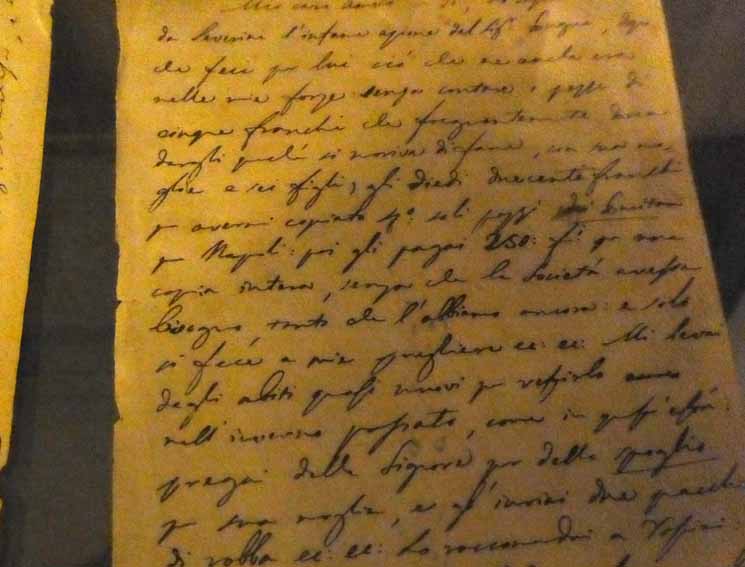 Mio caro
da Severini l'infame azione del Sig.r , dopo
che feci per lui ciò che ne anche era
nelle mie forze senza contare i pezzi di
cinque franchi che frequentemente dovea
dargli quale si moriva di fame, con sua mo-
glie e sei figli; gli diedi duecento franchi
p avermi copiato 4.º soli pezzi
p Napoli: poi gli pagai 250: f.i p una
copia intera, senza che la Società avesse
bisogno, tanto che l'abbiamo ancora: e solo
si fece a mie preghiere ec: ec: Mi levai
degli abiti quasi nuovi p vestirlo
nell'inverno passato, come in quest'età:
pregai delle Signore per delle spoglie
p sua moglie, e gl'inviai due pacchi
di robba ec: ec: Lo raccomandai a